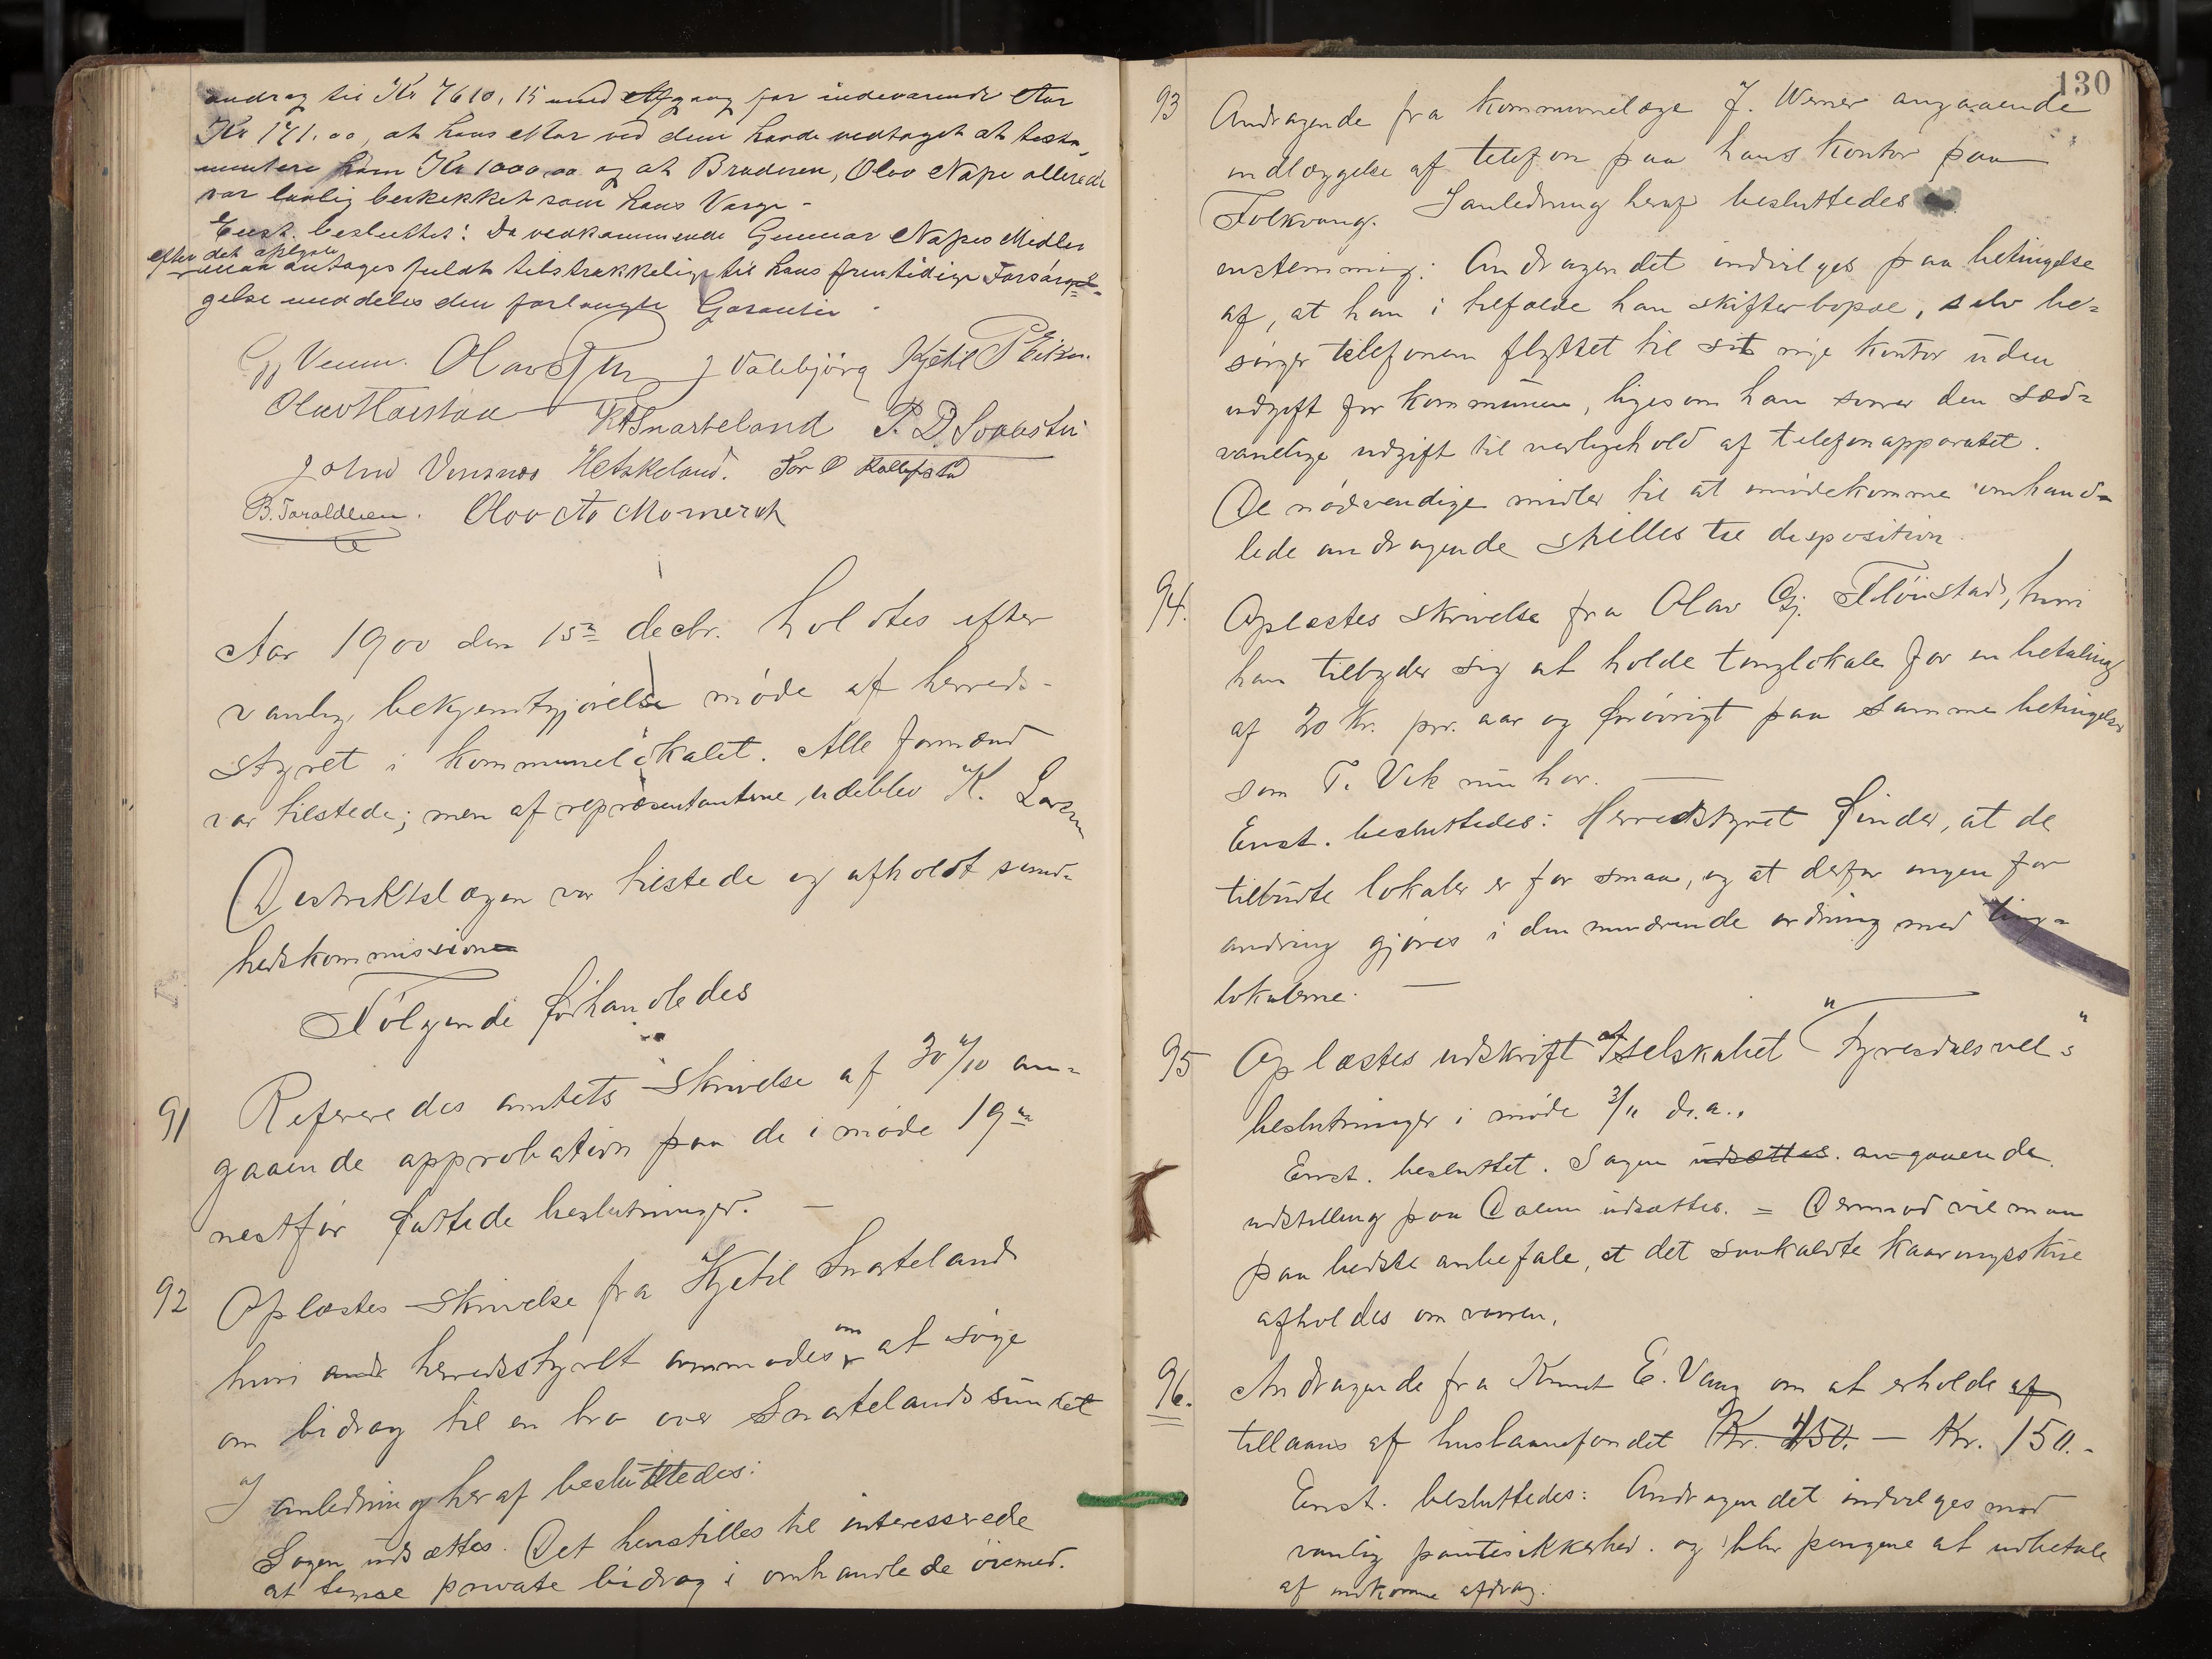 andrag til Kr 7610,15 med Afgang for indeværende Aar
Kr 171.00, at hans Mor ved dem havde vedtaget at testa-
mentere ham Kr 1000.00 og at Broderen, Olav Nape allerede
var lovlig beskikket som hans Verge -
Enst. besluttet: Da vedkommende Gunnar Napes Midler
efter det oplyste
maa antages fuldt tilstrækkelige til hans fremtidige Forsørgel-
gelse meddeles den forlangte Garanti
Venum. Olav J Valebjörg Kjetil P Eikn.
Olav Haistad K Snarteland P. D. Svaastu
John Vensnes H Askeland. Tor O Rollefstad
B. Taraldlien. Olov As Momerak
Aar 1900 den 15de decbr. holdtes efter
vanlig bekjentgjörelse möde af herreds-
styret i kommunelokalet. Alle formænd
var tilstede; men af repræsentantene udeblev K. Larsen
Distriktslægen var tilstede og afholdt sund-
hedskommission
Følgende forhandledes
91 Refereredes amtets skrivelse af 30/10 an-
gaaende approbation paa de i møde 19de
nestfør fattede beslutninger. —
92 Oplæstes skrivelse fra Kjetil Snarteland
hvori herredstyret anmodes om at søge
om bidrag til en bro over Snartelandssundet
I anledning heraf besluttedes:
Sagen udsættes. Det henstilles til interesserede
at tegne private bidrag i omhandlede öiemed.
130
93 Andragende fra kommunelæge J. Werner angaaende
indlæggelse af telefon paa hans kontor paa
Folkvang. I anledning heraf besluttedes
enstemmig: Andragendet indvilges paa betingelse
af, at han i tilfælde han skifter bopæl, selv be-
sørger telefonen flyttet til sit nye kontor uden
udgift for kommunen, ligesom han svarer den sæd-
vanlige udgift til vedligehold af telefonapparatet.
De nødvendige midler til at imødekomme omhand-
lede andragende stilles til disposition.
94. Oplæstes skrivelse fra Olav Gj. Fløistad, hvori
han tilbyder sig at holde tinglokale for en betaling
af 20 Kr. pr. aar og forøvrigt paa samme betingelser
som T. Vik nu har. —
Enst. besluttedes: Herredstyret finder, at de
tilbudte lokaler er for smaa, og at derfor ingen for
andring gjøres i den nuværende ordning med ting-
lokalerne. —
95 Oplæstes udskrift af selskabet "Fyresdals vel"s
beslutninger i møde 3/11 d.a.
Enst. besluttet. Sagen udsættes. angaaende
udstilling paa Dalen udsættes. = Dermod vil man
paa bedste anbefale, at det saakaldte kaaringsskue
afholdes om vaaren.
96. Andragende fra Knut E. Vang om at erholde af
tillaans af huslaanefondet Kr. 450. — Kr. 150.-
Enst. besluttedes: Andragendet indvilges mod
vanlig pantesikkerhed. og blir pengene at udbetale
af indkomne afdrag.